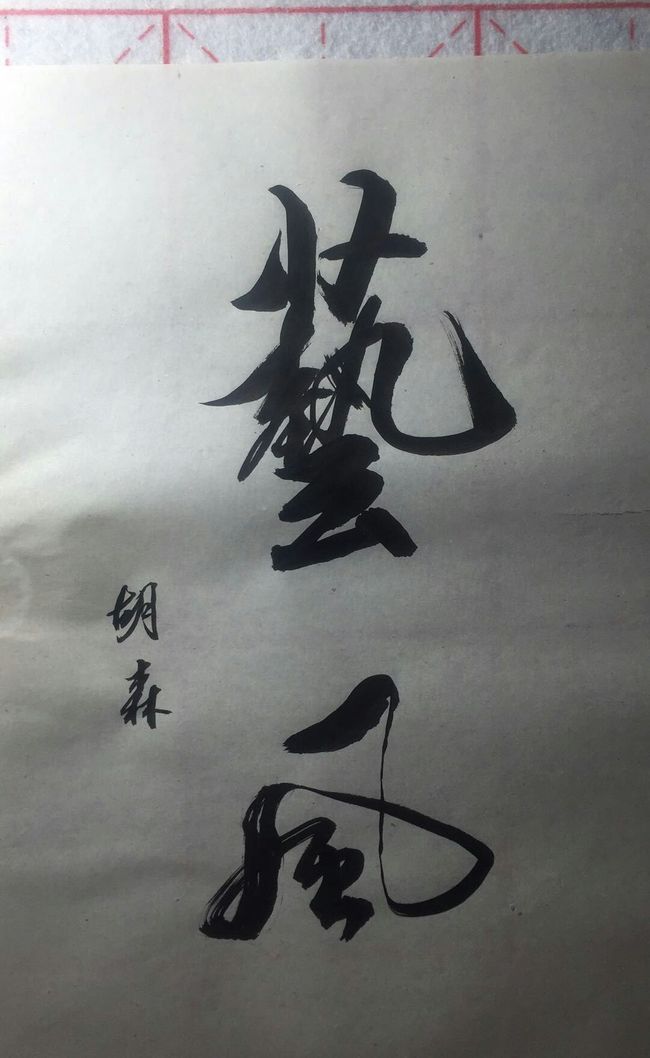 藝風
胡森